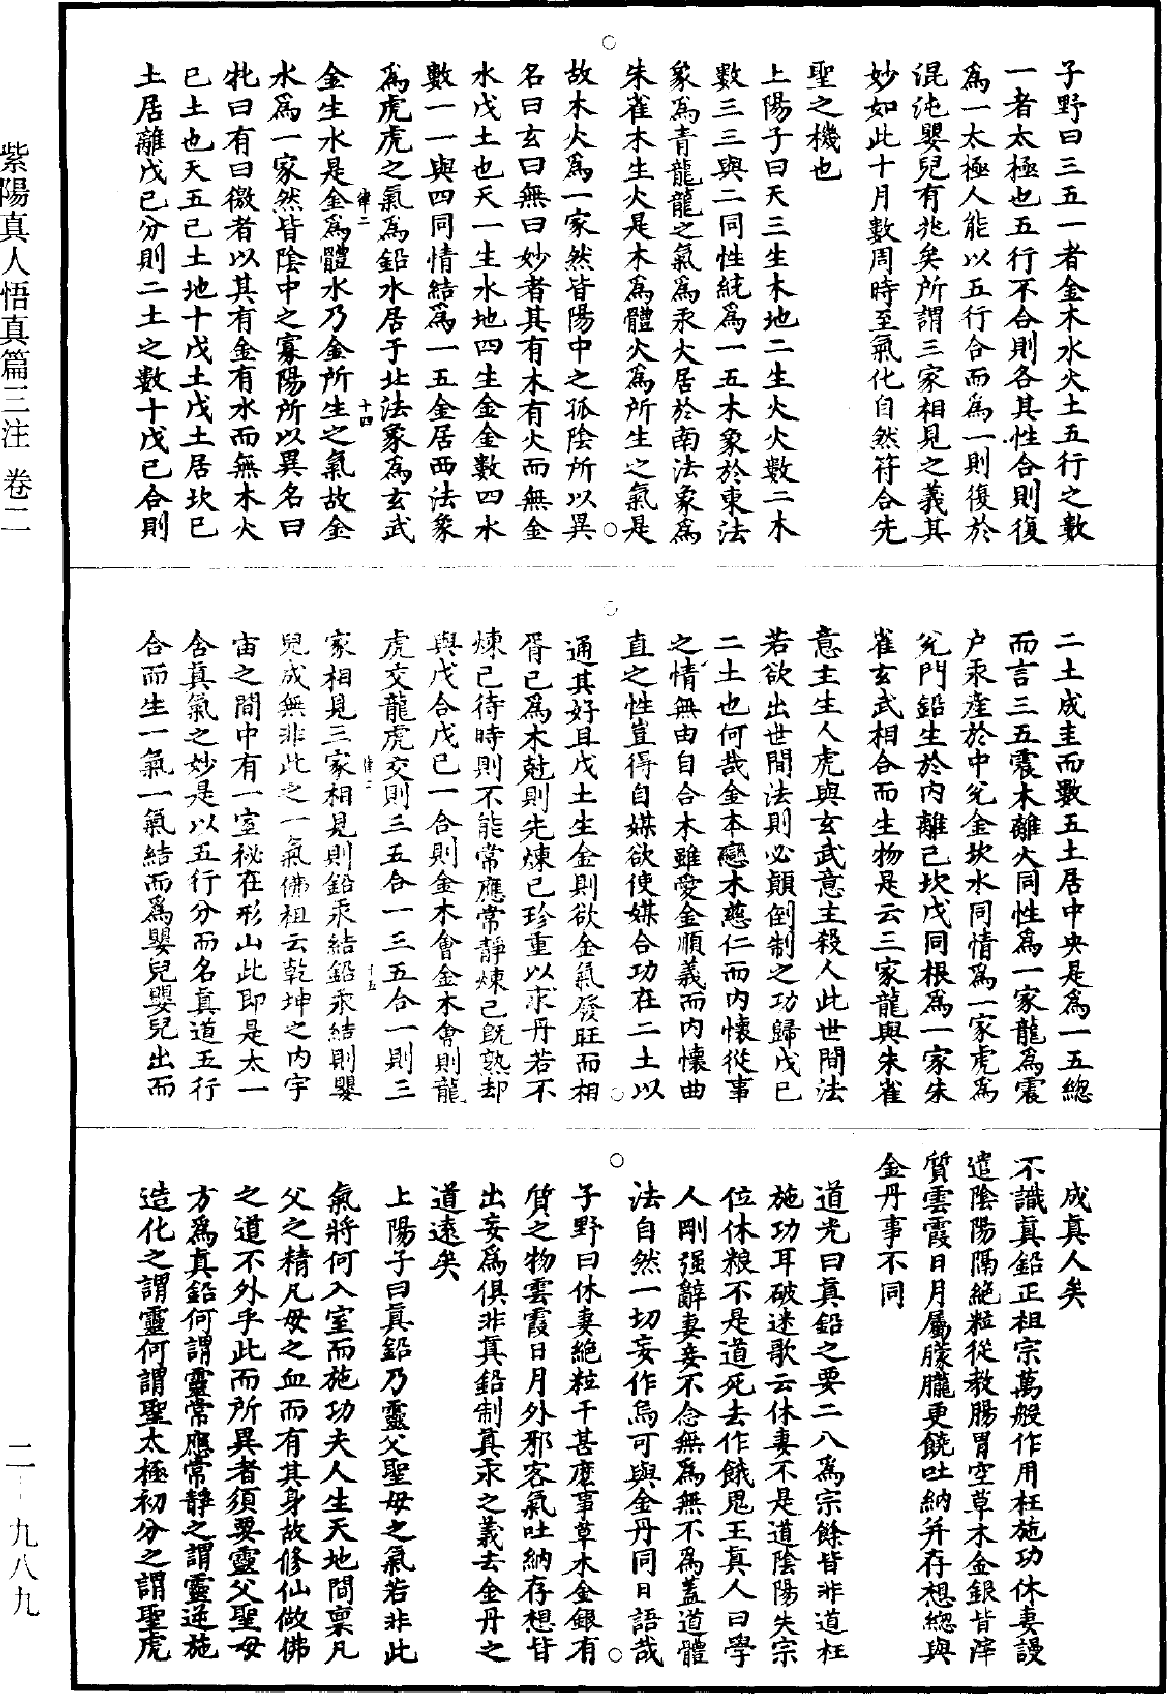 子野曰三五一者金木水火土五行之數
一者太極也五行不合則各其性合則復
爲一太極人能以五行合而爲一則復於
混沌嬰兒有兆矣所謂三家相見之義其
妙如此十月數周時至氣化自然符合先
聖之機也
上陽子曰天三生木地二生火火數二木
數三三與二同性統爲一五木象於東法
象爲青龍龍之氣爲汞火居於南法象爲
朱雀木生火是木爲體火爲所生之氣是
故木火爲一家然皆陽中之孤陰所以異
名曰玄曰無曰妙者其有木有火而無金
水戊土也天一生水地四生金金數四水
數一一與四同情結爲一五金居西法象
爲虎虎之氣爲鉛水居于北法象爲玄武
律二
十四
金生水是金爲體水乃金所生之氣故金
水爲一家然皆陰中之寡陽所以異名曰
牝曰有曰徼者以其有金有水而無木火
己土也天五己土地十戊土戊土居坎己
土居離戊己分則二土之數十戊己合則
二土成圭而數五土居中央是爲一五總
而言三五震木離火同性爲一家龍爲震
户汞產於中兌金坎水同情爲一家虎爲
兌門鉛生於内離己坎戊同根爲一家朱
雀玄武相合而生物是云三家龍與朱雀
意主生人虎與玄武意主殺人此世間法
若欲出世間法則必顛倒制之功歸戊己
二土也何哉金本戀木慈仁而内懷從事
之情無由自合木雖愛金順義而内懷曲
直之性豈得自媒欲使媒合功在二土以
通其好且戊土生金則欲金氣發旺而相
胥己爲木尅則先煉己珍重以求丹若不
煉己待時則不能常應常靜煉己既熟却
與戊合戊己一合則金木會金木會則龍
虎交龍虎交則三五合一三五合一則三
十五
家相見三家相見則鉛汞結鉛汞結則嬰
兒成無非此之一氣佛祖云乾坤之内宇
宙之間中有一室秘在形山此即是太一
含真氣之妙是以五行分而名真道五行
合而生一氣一氣結而爲嬰兒嬰兒出而
成真人矣
不識真鉛正祖宗萬般作用枉施功休妻謾
遣陰陽隔絶粒從教腸胃空草木金銀皆滓
質雲霞日月屬朦朧更饒吐納并存想總與
金丹事不同
道光曰真鉛之要二八爲宗餘皆非道枉
施功耳破迷歌云休妻不是道陰陽失宗
位休粮不是道死去作餓鬼王真人曰學
人剛强辭妻妾不念無爲無不爲蓋道體
法自然一切妄作焉可與金丹同日語哉
子野曰休妻絶粒干甚麽事草木金銀有
質之物雲霞日月外邪客氣吐納存想皆
出妄爲俱非真鉛制真汞之義去金丹之
道遠矣
上陽子曰真鉛乃靈父聖母之氣若非此
氣將何入室而施功夫人生天地間禀凡
父之精凡母之血而有其身故修仙做佛
之道不外乎此而所異者須要靈父聖母
方爲真鉛何謂靈常應常静之謂靈逆施
造化之謂靈何謂聖太極初分之謂聖虎
紫陽真人悟真篇三注 卷二
二-九八九